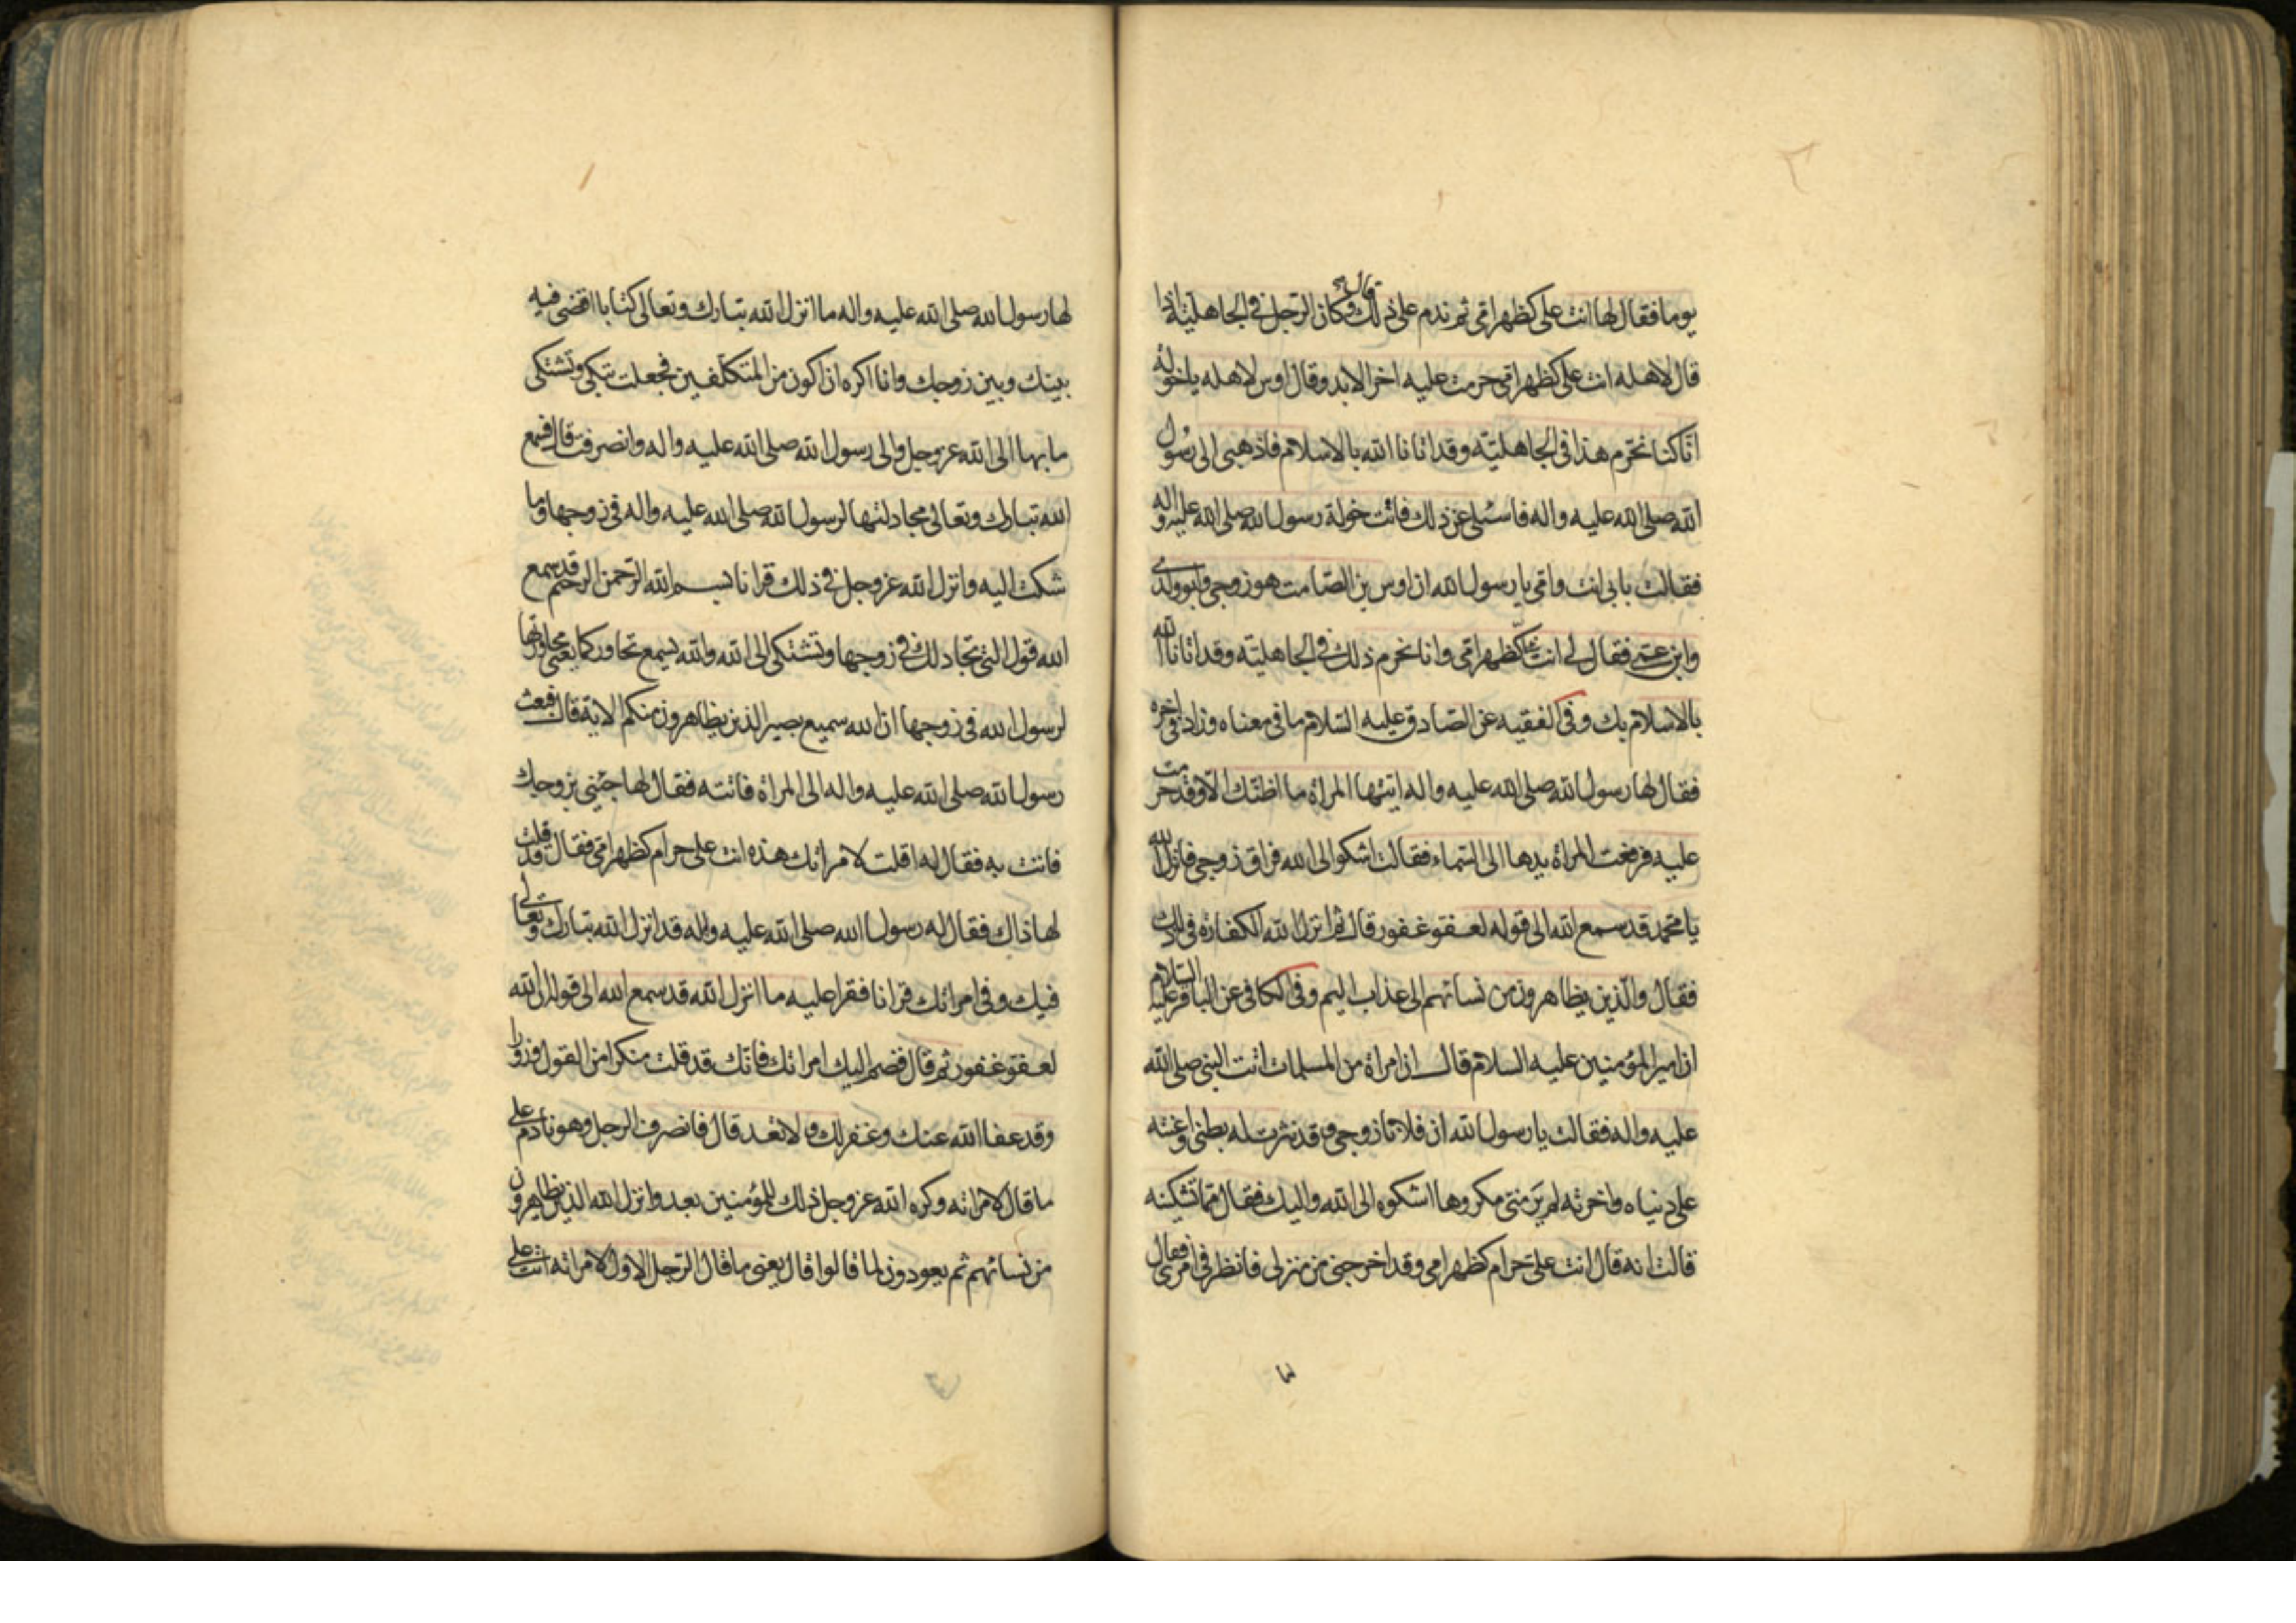 يوما فقال لها انت على كظهر امى ثم ندم على ذلك قال وكان الرجل فى الجاهلية اذا
قال لاهله انت على كظهر امى حرمت عليه اخر الابد وقال اوس لاهله يا خولة
انا كنا نحرم هذا فى الجاهلية وقد اتانا الله بالاسلام فاذهبى الى رسول
الله صلى الله عليه واله فاسئلى عن ذلك فاتت خولة رسول الله صلى الله عليه واله
فقالت بابى انت وامى يا رسول الله ان اوس بن الصامت هو زوجى وابو ولدى
وابن عمى فقال لى انت على كظهر امى وانا نحرم ذلك فى الجاهلية وقد اتانا الله
بالاسلام بك وفى الفقيه عن الصادق عليه السلام ما فى معناه وزاد فى اخره
فقال لها رسول الله صلى الله عليه واله ايتها المراة ما اظنك الا وقد حرمت
عليه فرفعت المراة يدها الى السماء فقالت اشكو الى الله فراق زوجى فانزل الله
يا محمد قد سمع الله الى قوله لعفو غفور قال ثم انزل الله الكفارة فى ذلك
فقال والذين يظاهرون من نسائهم الى عذاب اليم وفى الكافى عن الباقر عليه السلام
ان امير المؤمنين عليه السلام قال ان امراة من المسلمات اتت النبى صلى الله
عليه واله فقالت يا رسول الله ان فلانا زوجى وقد نثرت له بطنى واعنته
على دنياه واخرته لم ير منى مكروها اشكوه الى الله واليك فقال مما تشكينه
قالت انه قال انت على حرام كظهر امى وقد اخرجنى من منزلى فانظر فى امرى فقال
٣
لها رسول الله صلى الله عليه واله ما انزل الله تبارك وتعالى كتابا اقضى فيه
بينك وبين زوجك وانا اكره ان اكون من المتكلفين فجعلت تبكى وتشتكى
ما بها الى الله عز وجل والى رسول الله صلى الله عليه واله وانصرفت قال فسمع
الله تبارك وتعالى مجادلتها لرسول الله صلى الله عليه واله فى زوجها وما
شكت اليه وانزل الله عز وجل فى ذلك قرانا بسم الله الرحمن الرحيم قد سمع
الله قول التى تجادلك فى زوجها وتشتكى الى الله والله يسمع تحاوركما يعنى محاورتها
لرسول الله فى زوجها ان الله سميع بصير الذين يظاهرون منكم الاية قال فبعث
رسول الله صلى الله عليه واله الى المراة فاتته فقال لها جيئينى بزوجك
فاتت به فقال له اقلت لامراتك هذه انت على حرام كظهر امى فقال قد قلت
لها ذاك فقال له رسول الله صلى الله عليه واله قد انزل الله تبارك وتعالى
فيك وفى امراتك قرانا فقرا عليه ما انزل الله قد سمع الله الى قوله ان الله
لعفو غفور ثم قال فضم اليك امراتك فانك قد قلت منكرا من القول وزورا
وقد عفا الله عنك وغفر لك ولا تعد قال فانصرف الرجل وهو نادم على
ما قال لامراته وكره الله عز وجل ذلك للمؤمنين بعد وانزل الله الذين يظاهرون
من نسائهم ثم يعودون لما قالوا قال يعنى ما قال الرجل الاول لامراته انت على